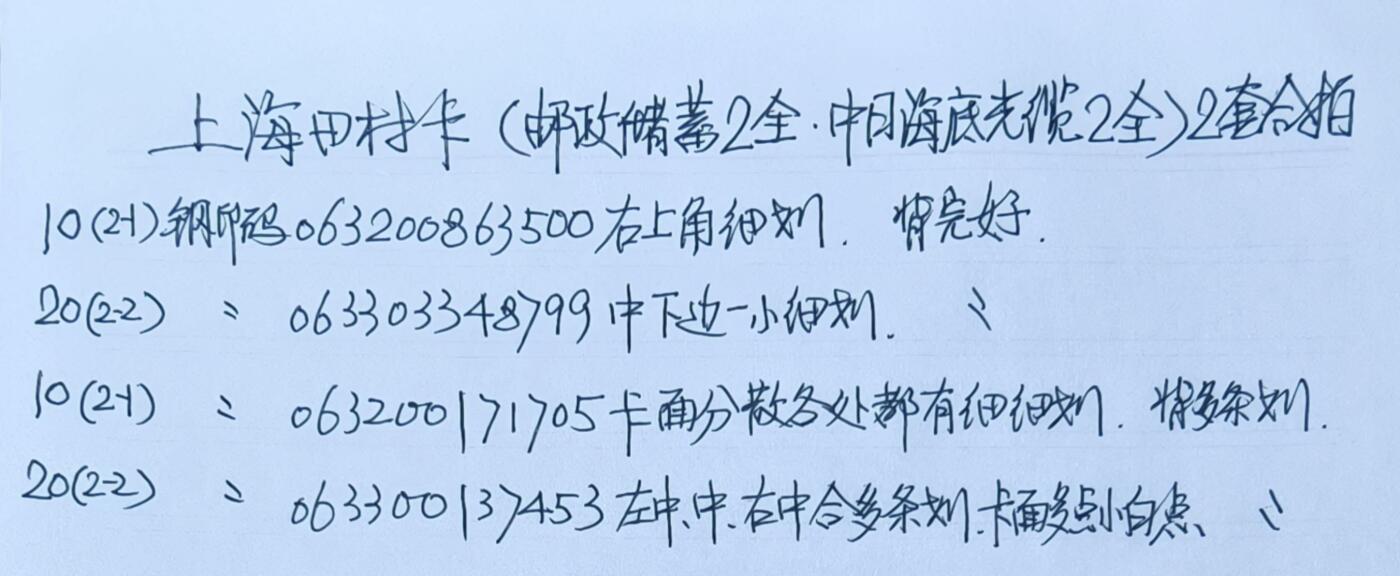 上海田村卡(邮政储蓄2全·中日海底光缆2全)2套合拍
10(2-1)钢印码063200863500右上角细划. 背完好.
20(2-2) 〃 063303348799中下边一小细划. 〃
10(2-1) 〃 063200171705卡面分散各处都有细细划. 背多条划.
20(2-2) 〃 063300137453左中、中、右中合多条划.卡面多点小白点、 〃